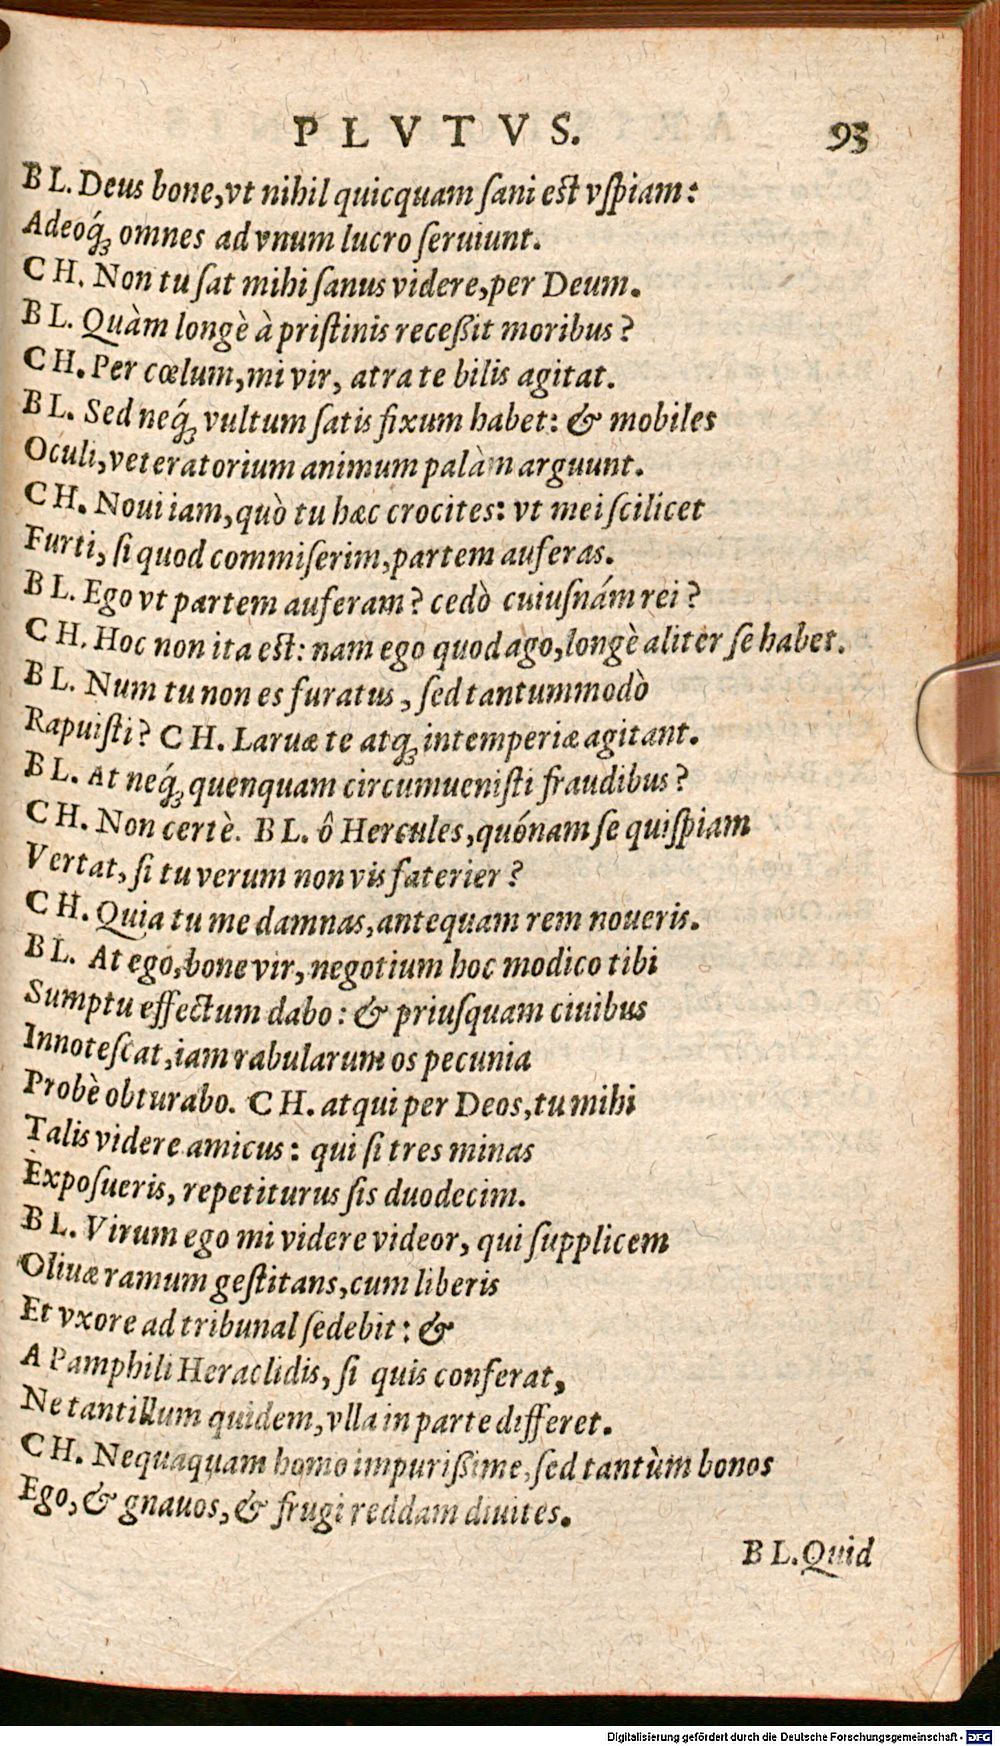 PLVTVS. 93
BL. Deus bone, vt nihil quicquam ſani est vſpiam:
Adeoq́ꝫ omnes ad vnum lucro ſeruiunt.
CH. Non tu ſat mihi ſanus videre, per Deum.
BL. Quàm longè à priſtinis receßit moribus?
CH. Per cœlum, mi vir, atra te bilis agitat.
BL. Sed neq́ꝫ vultum ſatis fixum habet: & mobiles
Oculi, veteratorium animum palàm arguunt.
CH. Noui iam, quò tu hæc crocites: vt mei ſcilicet
Furti, ſi quod commiſerim, partem auferas.
BL. Ego vt partem auferam? cedò cuiuſnám rei?
CH. Hoc non ita est: nam ego quod ago, longè aliter ſe habet.
BL. Num tu non es furatus, ſed tantummodò
Rapuiſti? CH. Laruæ te atqꝫ intemperiæ agitant.
BL. At neq́ꝫ quenquam circumueniſti fraudibus?
CH. Non certè. BL. ô Hercules, quónam ſe quiſpiam
Vertat, ſi tu verum non vis faterier?
CH. Quia tu me damnas, antequam rem noueris.
BL. At ego, bone vir, negotium hoc modico tibi
Sumptu effectum dabo: & priuſquam ciuibus
Innoteſcat, iam rabularum os pecunia
Probè obturabo. CH. atqui per Deos, tu mihi
Talis videre amicus: qui ſi tres minas
Expoſueris, repetiturus ſis duodecim.
BL. Virum ego mi videre videor, qui ſupplicem
Oliuæ ramum geſtitans, cum liberis
Et vxore ad tribunal ſedebit: &
A Pamphili Heraclidis, ſi quis conferat,
Ne tantillum quidem, vlla in parte differet.
CH. Nequaquam homo impurißime, ſed tantùm bonos
Ego, & gnauos, & frugi reddam diuites.
BL. Quid
Digitalisierung gefördert durch die Deutsche Forschungsgemeinschaft - DFG